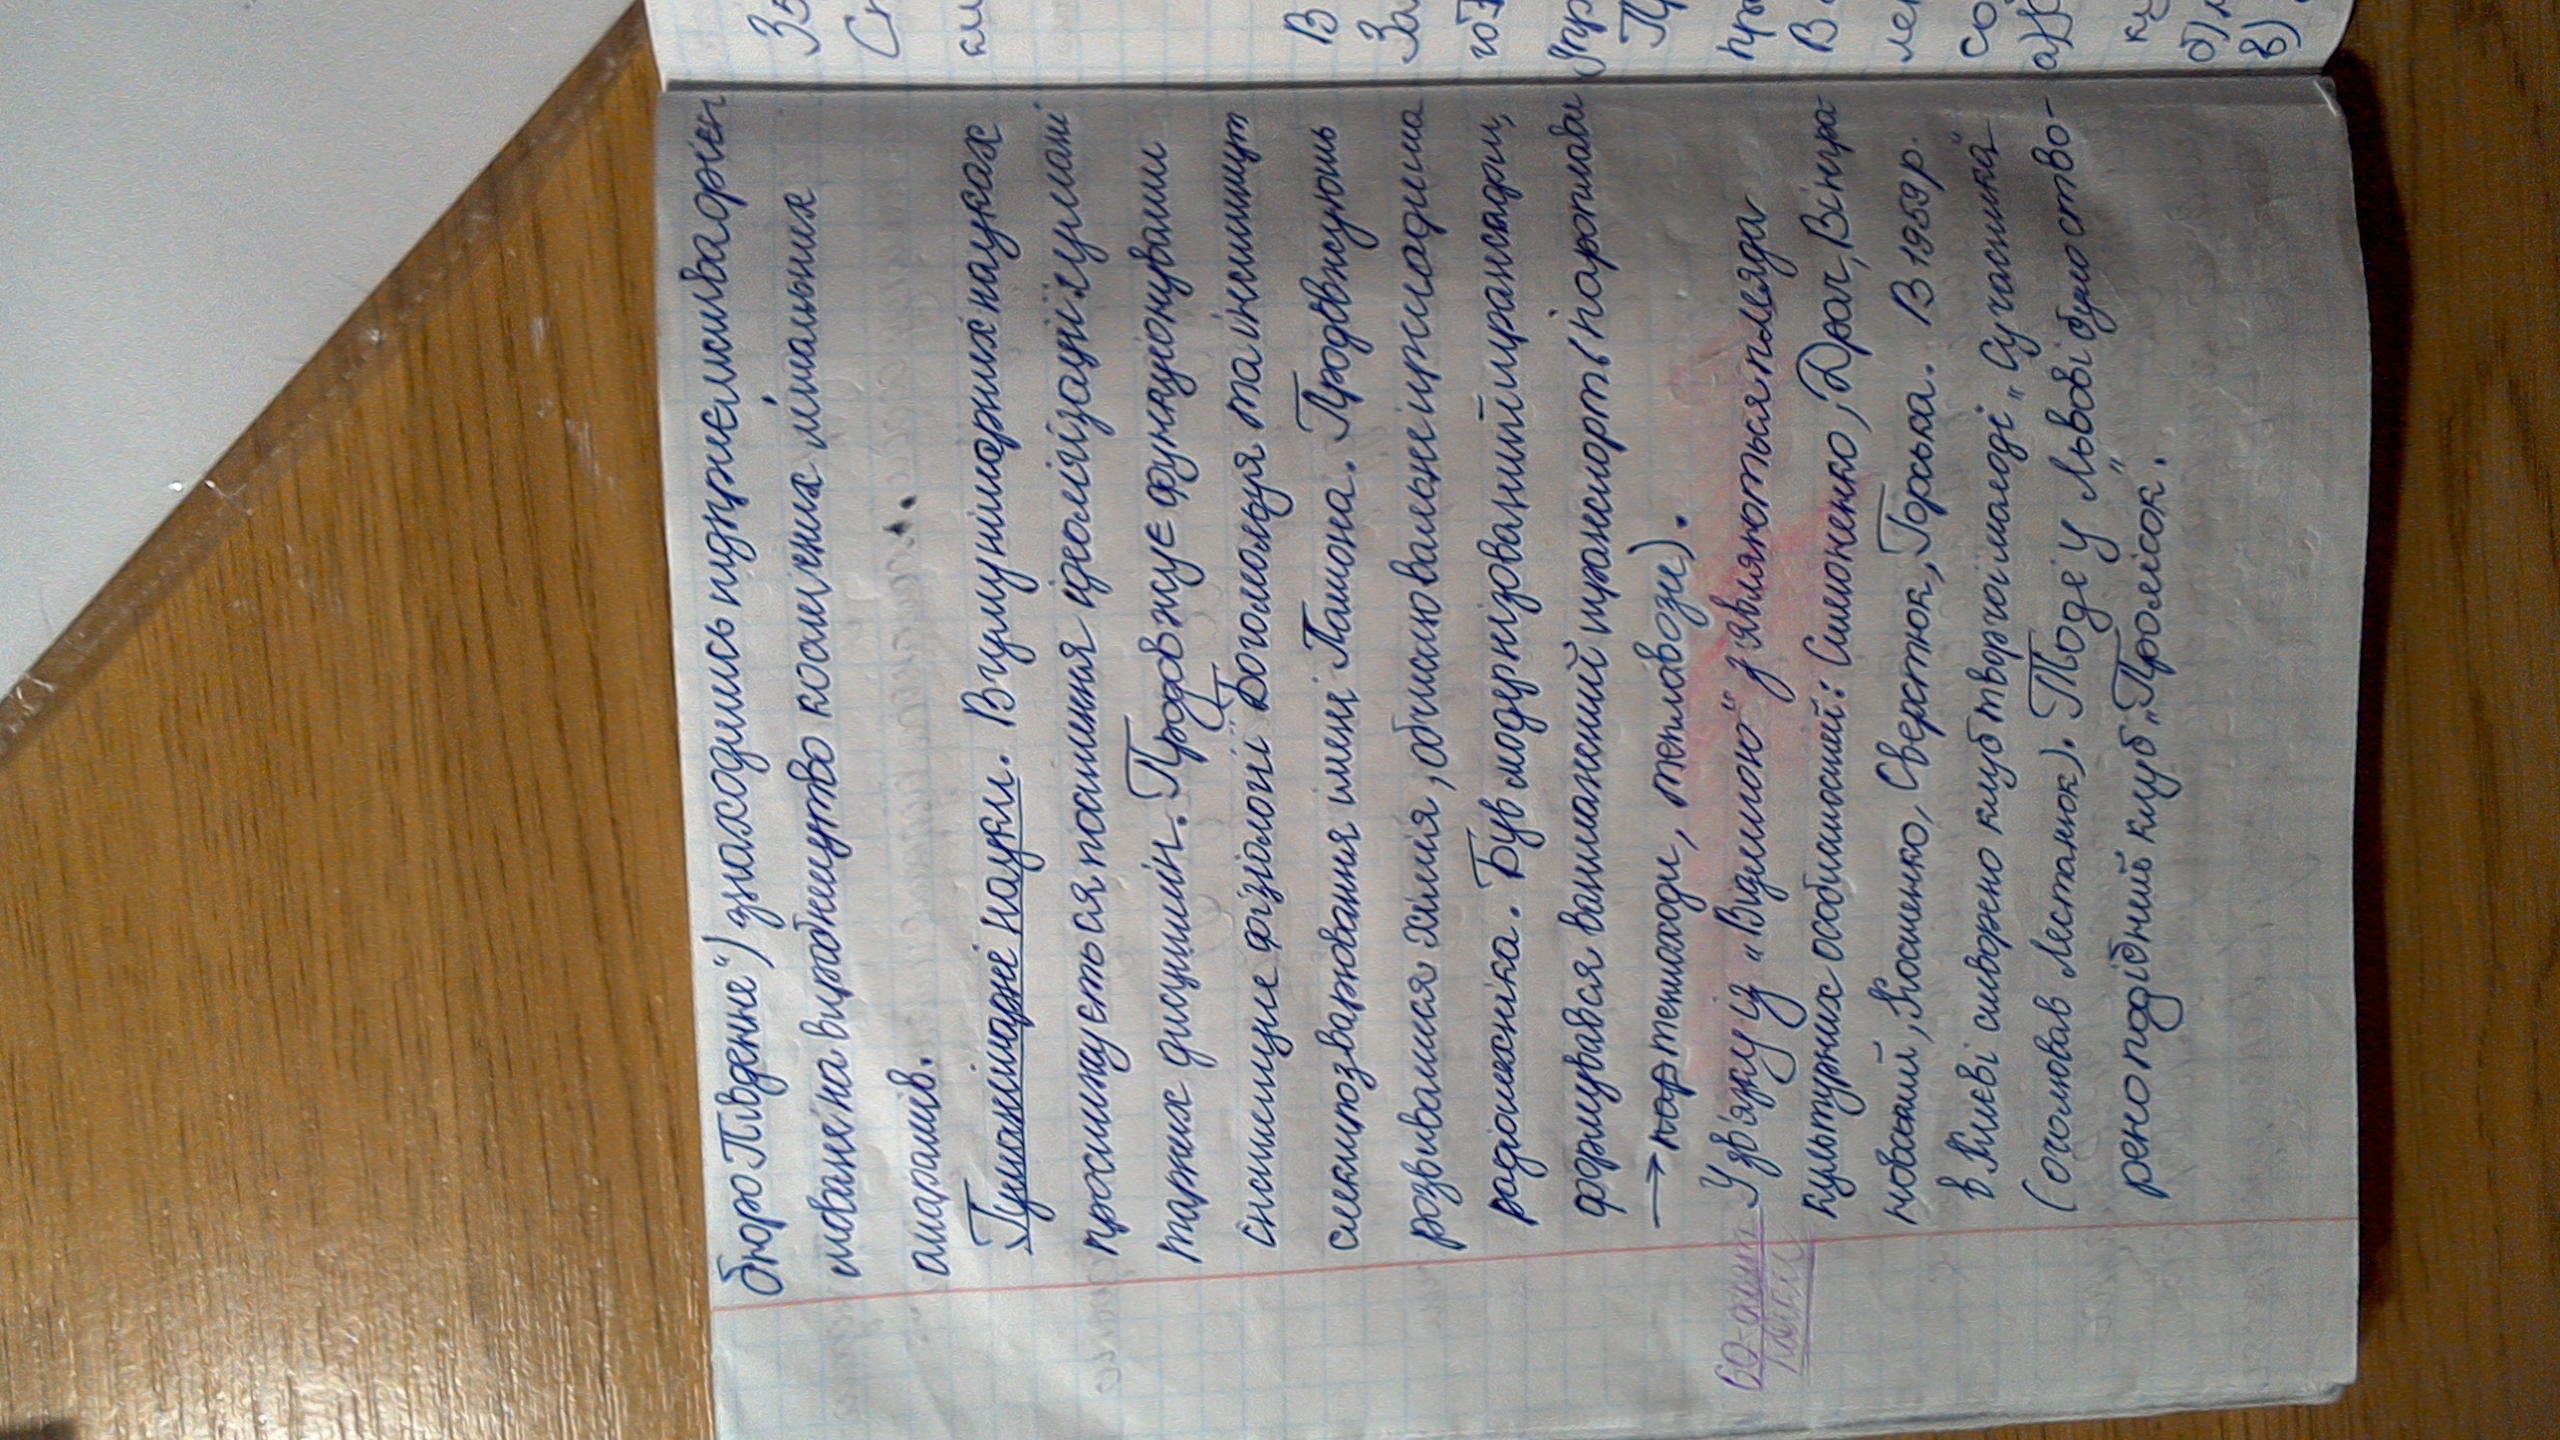 бюро Південне") знаходились підприємства орієн
товане на виробництво космічних літальних
апаратів.
Гуманітарні науки. В гуманітарних науках
простежується посилення ідеологізації гумані
тарних дисциплін. Продовжує функціонувати
інститут фізіології Богомольця та інститут
електрозварювання імені Патона. Продовжують
розвиватися хімія, обчислювальні прилади та
радіотехніка. Був модернізований транспорт,
формувався вантажний транспорт (пароплави
→ пар теплоходи, тепловози).
60-ит
У зв'язку із „Відлигою" з'являються плеяда
культурних особистостей: Симоненко, Драч, Вінгра
новський, Костенко, Сверстюк, Горська. В 1959 р.
в Києві створено клуб творчої молоді „Сучасника"
(очолював Лестанюк). Тоді у Львові було ство-
рено подібний клуб „Пролісок".
Зв
Сп
В
За
гот
Пр
пр
В
лен
со
а)
б)
в)